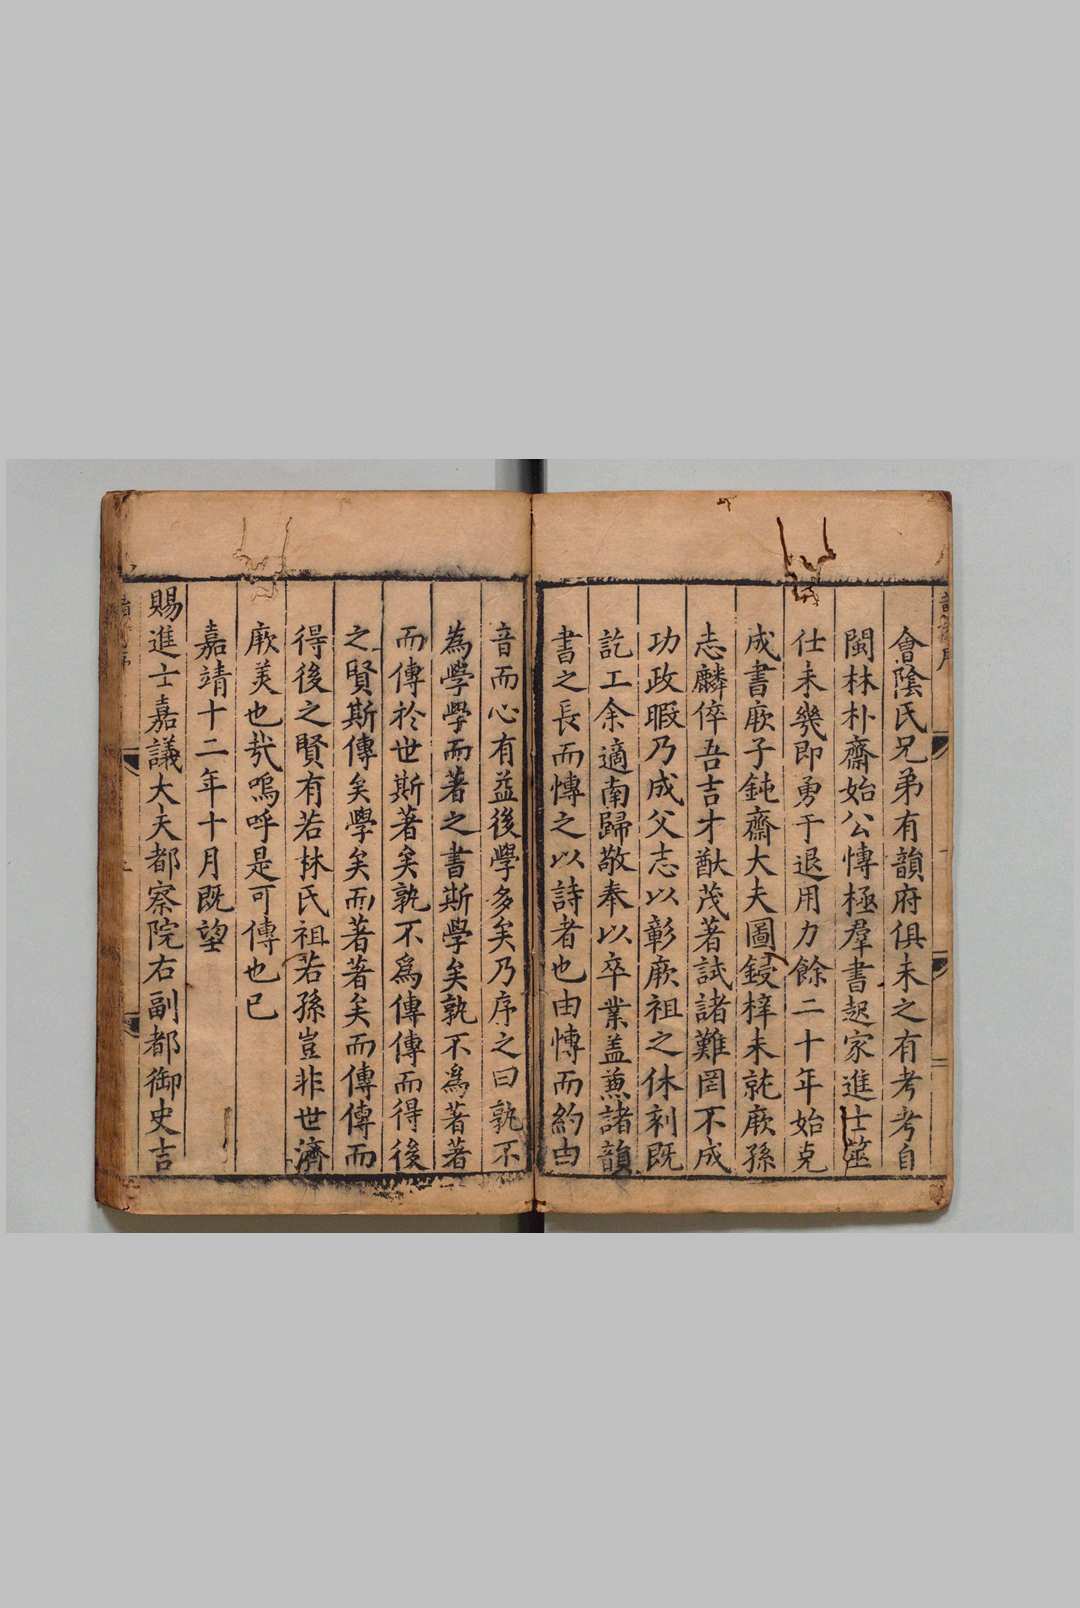 會陰氏兄弟有韻府俱未之有考考自
閩林朴齋始公慱極羣書起家進士筮
仕未幾即勇于退用力餘二十年始克
成書厥子鈍齋大夫圖鋟梓未就厥孫
志麟倅吾吉才猷茂著試諸難罔不成
功政暇乃成父志以彰厥祖之休刻既
訖工余適南歸敬奉以卒業盖兼諸韻
書之長而慱之以詩者也由慱而約由
音而心有益後學多矣乃序之曰孰不
為學學而著之書斯學矣孰不為著著
而傳於世斯著矣孰不為傳傳而得後
之賢斯傳矣學矣而著著矣而傳傳而
得後之賢有若林氏祖若孫豈非世濟
厥美也㦲嗚呼是可傳也已
嘉靖十二年十月既望
賜進士嘉議大夫都察院右副都御史吉